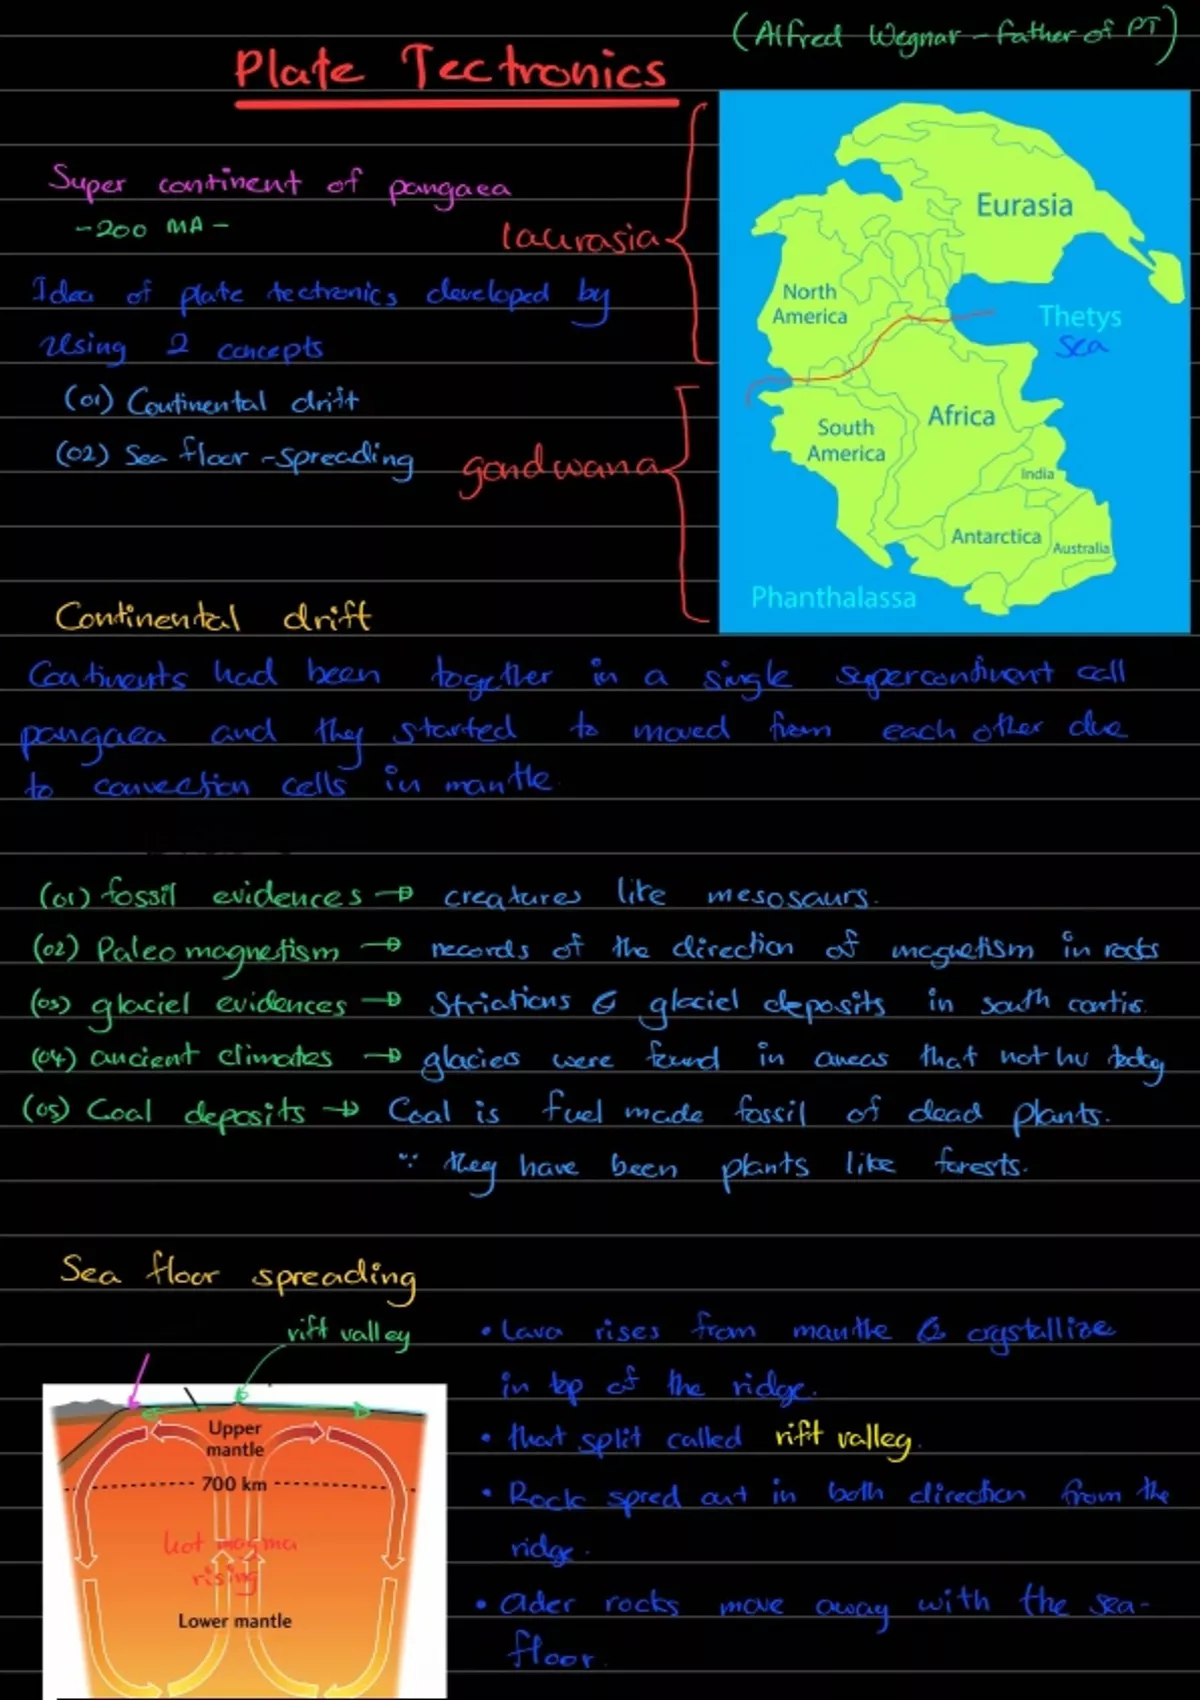 (Alfred Wegnar - father of PT)
Plate Tectronics
Super continent of pangaea
- 200 MA -
laurasia
Idea of plate tectronics developed by
Using 2 concepts
(01) Continental drift
(02) Sea floor - spreading
gondwana
Eurasia
North
America
Thetys
sea
Africa
South
America
India
Antarctica
Australia
Phanthalassa
Continental drift
Continents had been together in a single supercontinent call
pangaea and they started to moved from each other due
to convection cells in mantle.
(01) fossil evidences → creatures like mesosaurs.
(02) Paleo magnetism → records of the direction of magnetism in rocks
(03) glaciel evidences → Striations & glaciel deposits in south
(04) ancient climates → glaciers were found in areas that not today
(05) Coal deposits → Coal is fuel made fossil of dead plants.
∵ they have been plants like forests.
Sea floor spreading
rift valley
Upper
mantle
700 km
hot magma
rising
Lower mantle
• Lava rises from manthe & crystallize
in top of the ridge.
• that split called rift valley.
• Rock spred out in both direction from the
ridge.
• Older rocks move away with the sea-
floor.